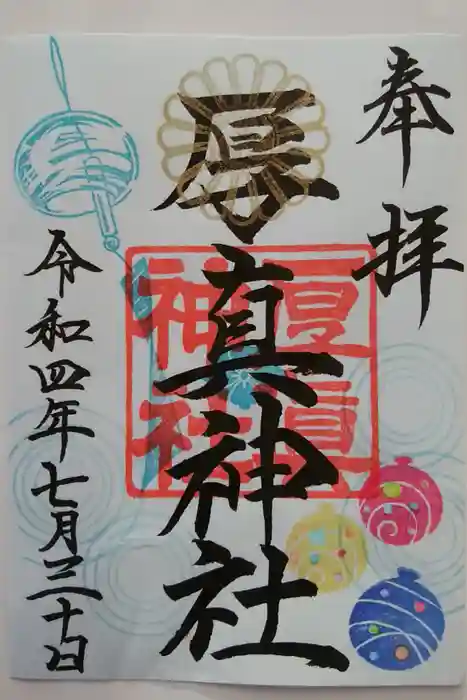 奉拝
厚真神社
厚真神社
令和四年七月三十日